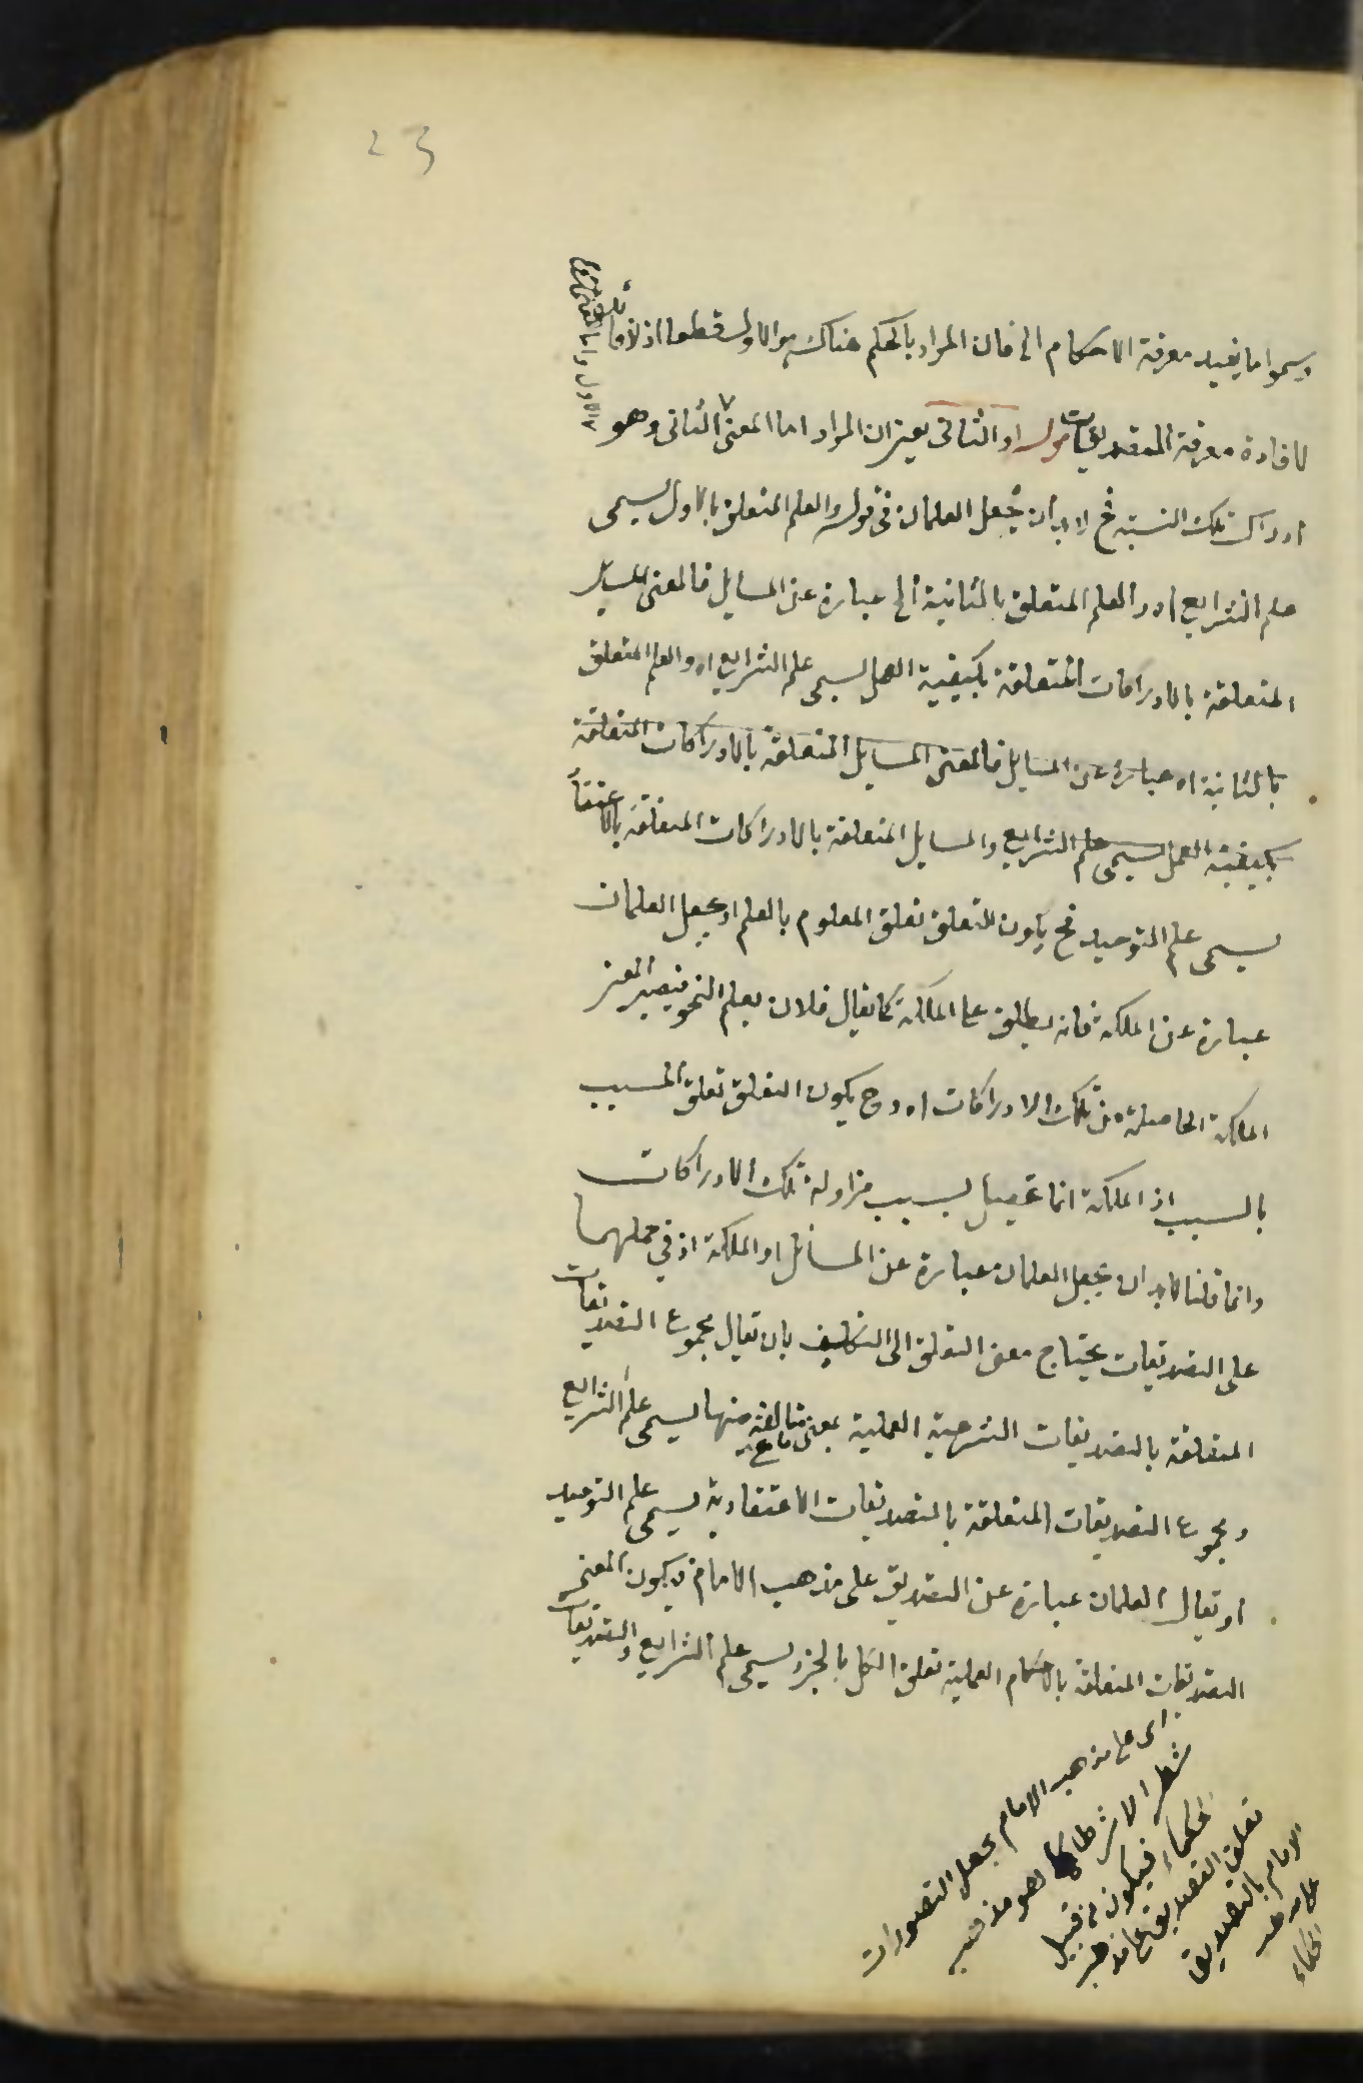 23
وسموا ما يفيد معرفة الاحكام الخ فان المراد بالحكم هناك هو الاول قطعا اذ لا
لافادة معرفة التصديقات قوله او الثانى يعنى ان المراد اما المعنى الثانى وهو
ادراك تلك النسبة فح لا بد ان يجعل العلمان فى قوله والعلم المتعلق بالاول يسمى
علم الشرايع اه والعلم المتعلق بالثانية الخ عبارة عن المسايل فالمعنى المسايل
المتعلقة بالادراكات المتعلقة بكيفية العمل يسمى علم الشرايع اه والعلم المتعلق
بالثانية اه عبارة عن المسايل فالمعنى المسايل المتعلقة بالادراكات المتعلقة
بكيفية العمل يسمى علم الشرايع والمسايل المتعلقة بالادراكات المتعلقة بالاعتقاد
يسمى علم التوحيد فح يكون التعلق تعلق المعلوم بالعلم او يجعل العلمان
عبارة عن الملكة فانه يطلق على الملكة كما يقال فلان يعلم النحو فيصير المعنى
الملكة الحاصلة من تلك الادراكات اه وح يكون التعلق تعلق المسبب
بالسبب اذ الملكة انما تحصل بسبب مزاولة تلك الادراكات
وانما قلنا لابد ان يجعل العلمان عبارة عن المسائل او الملكة اذ في حملهما
على التصديقات يحتاج معنى التعلق الى التكليف بان يقال مجموع التصديقات
المتعلقة بالتصديقات الشرعية العملية بمعنى متالفة منها يسمى علم الشرايع
ومجموع التصديقات المتعلقة بالتصديقات الاعتقادية يسمى علم التوحيد
او يقال العلمان عبارة عن التصديق على مذهب الامام فيكون المعنى
التصديقات المتعلقة بالاحكام العملية تعلق الكل بالجزء يسمى علم الشرايع والتصديقات
اى على مذهب الامام يجعل التصورات
شطرا لا شرطا كما هو مذهب
الحكماء فيكون من قبيل
تعلق التصديق على مذهب
الامام بالتصديق
على مذهب
الحكماء